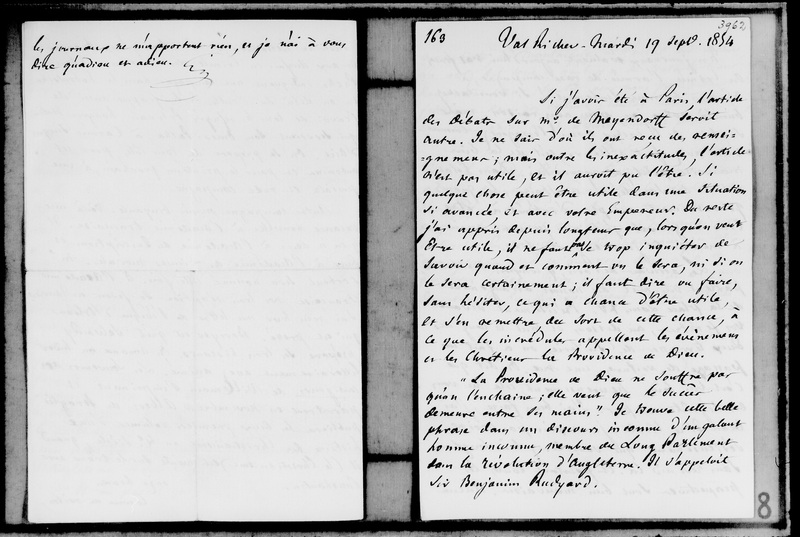 les journaux ne m'apportent rien, et je n'ai à vous
dire qu'adieu et adieu.
3962
163 Val Richer - Mardi 19 Sept. 1854
Si j'avois été à Paris, l'article
des Débats sur Mr. de Meyendorff seroit
autre. Je ne sais d'où ils ont reçu des rensei-
=gnemens ; mais outre les inexactitudes, l'article
n'est pas utile, et il auroit pu l'être. Si
quelque chose peut être utile dans une situation
si avancée et avec votre Empereur. Du reste
j'ai appris depuis longtems que, lorsqu'on veut
être utile, il ne faut pas se trop inquiéter de
savoir quand et comment on le sera, ni si on
le sera certainement ; il faut dire ou faire,
sans hésiter, ce qui a chance d'être utile,
et s'en remettre du sort de cette chance, à
ce que les incrédules appellent les évènemens
et les Chrétiens la Providence de Dieu.
"La Providence de Dieu ne souffre pas
qu'on l'enchaine ; elle veut que le succès
demeure entre ses mains" Je trouve cette belle
phrase dans un discours inconnu d'un galant
homme inconnu, membre du Long Parlement
dans la révolution d'Angleterre. Il s'appeloit
Sir Benjamin Rudyard.
8